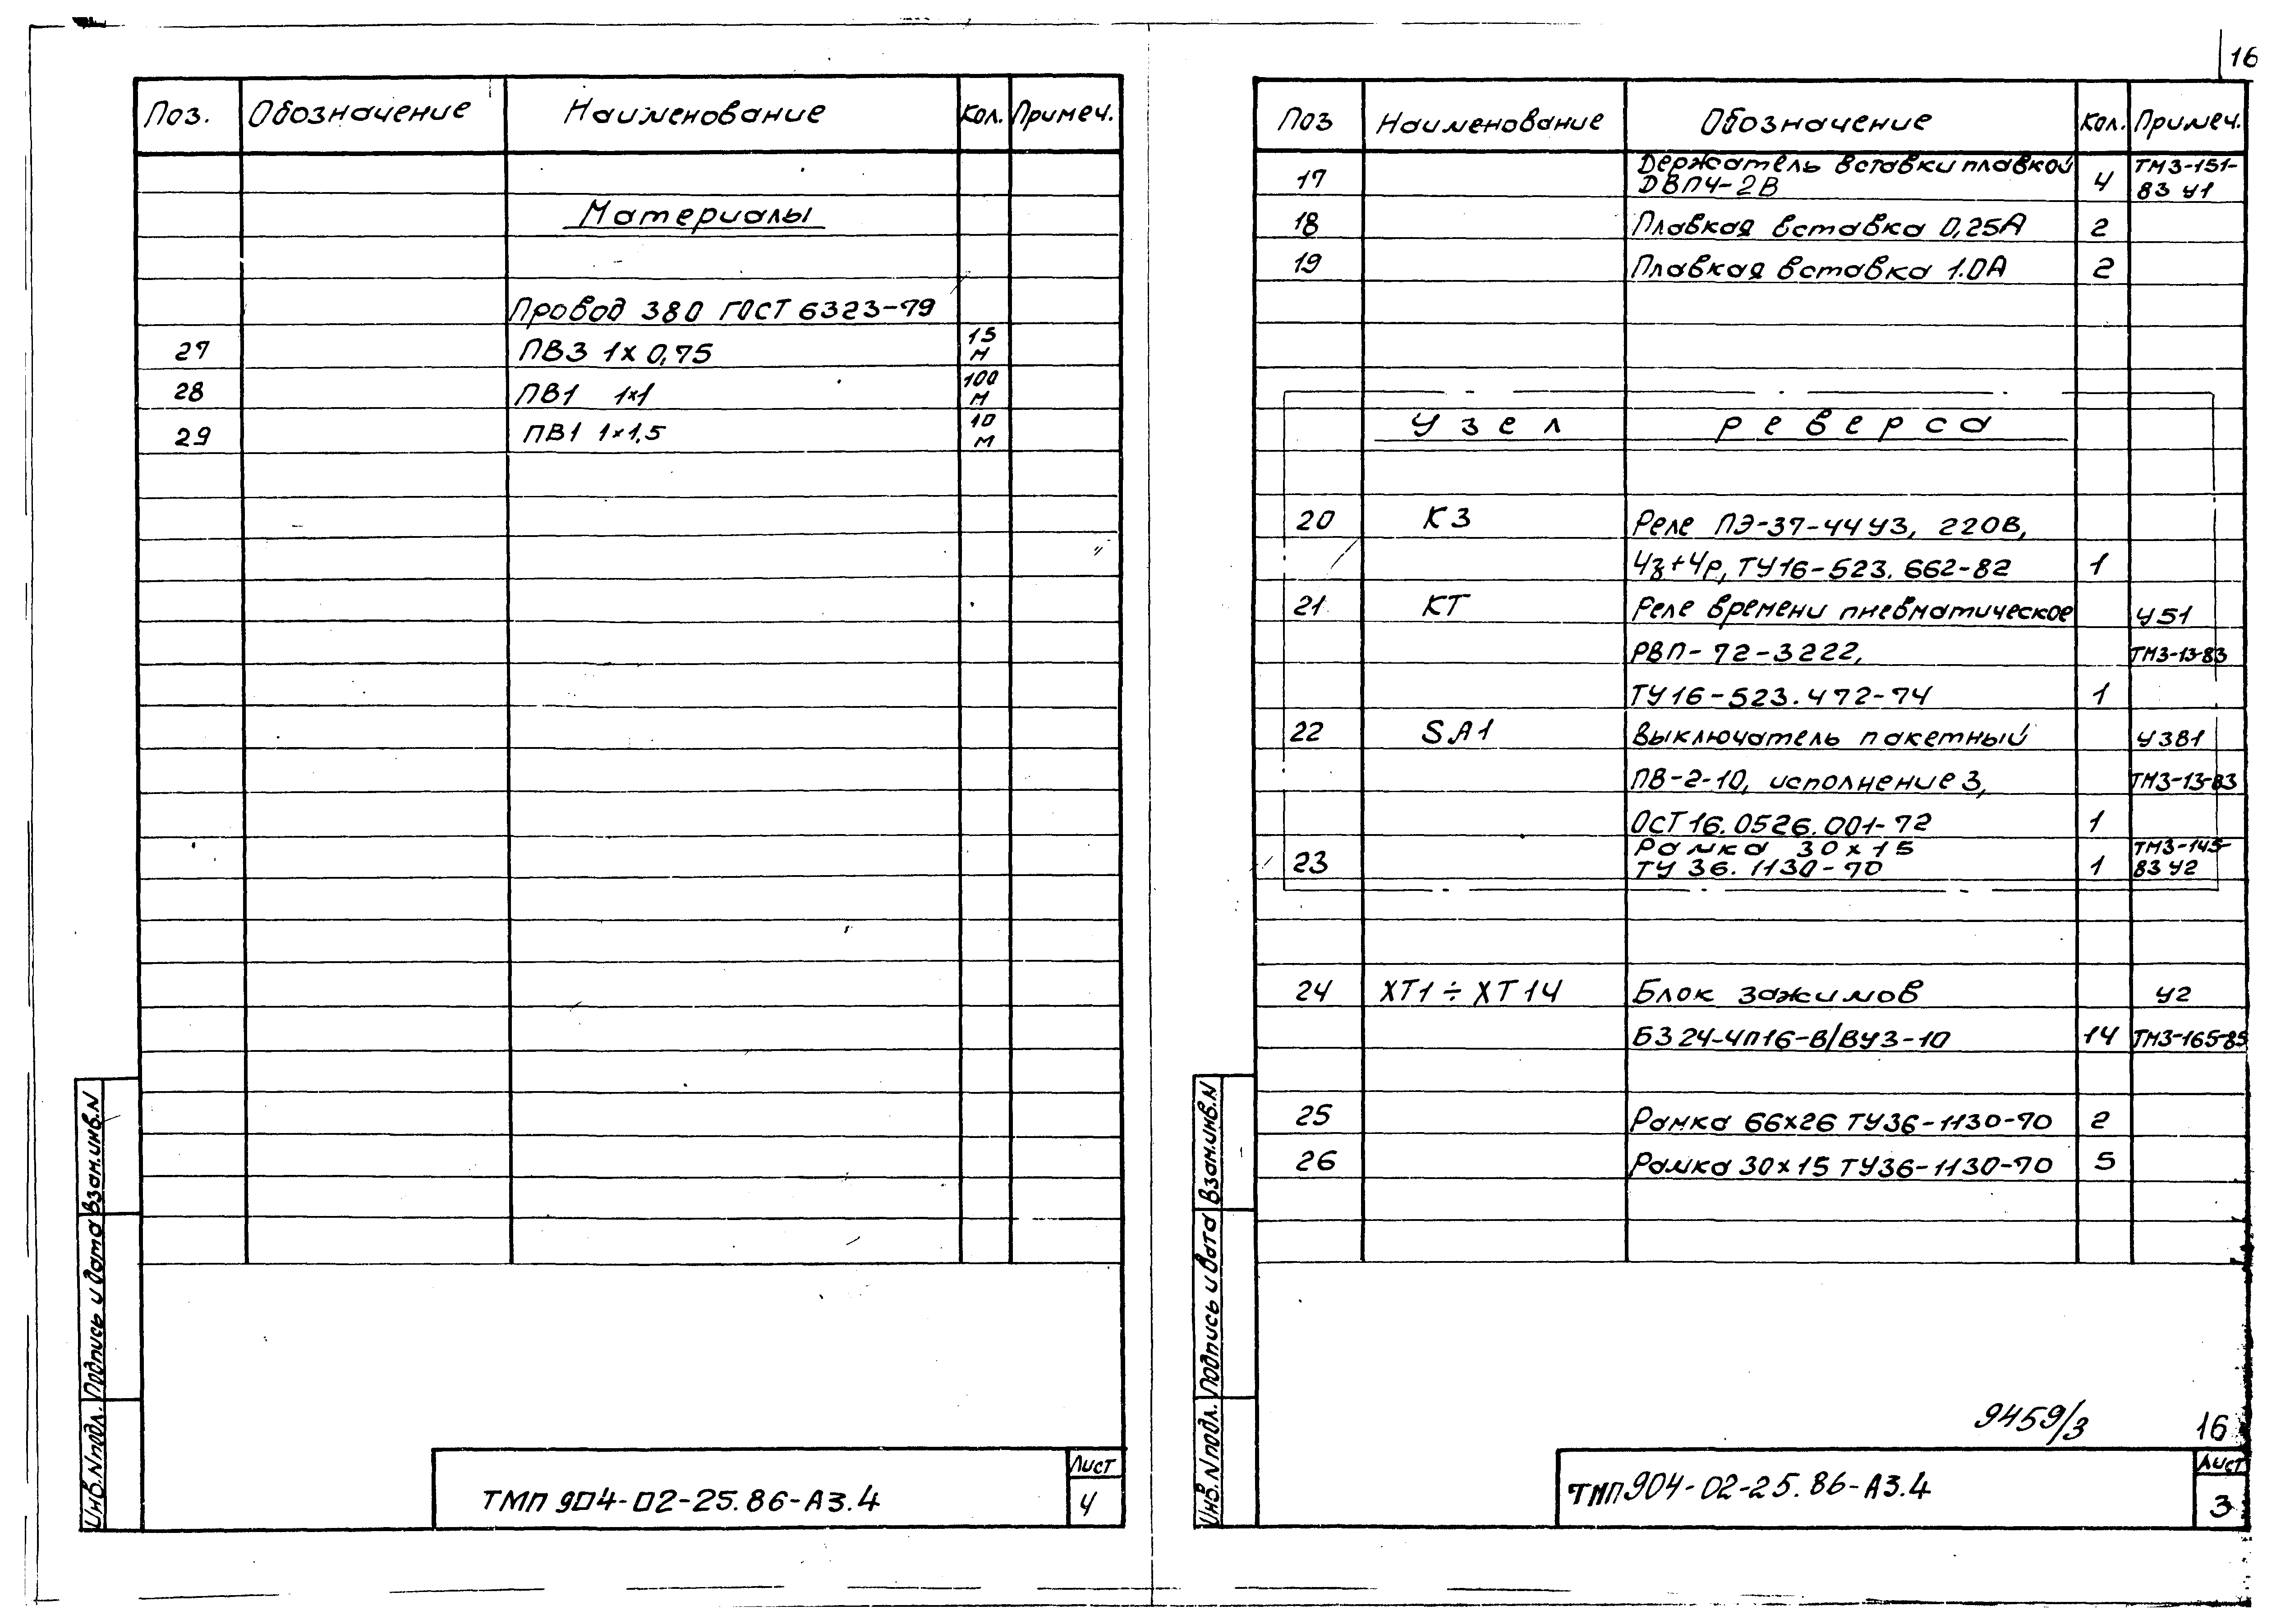 16
Поз. Обозначение Наименование Кол. Примеч.
Материалы
Провод 380 ГОСТ 6323-79
27 ПВ3 1х0,75 15 м
28 ПВ1 1х1 100 м
29 ПВ1 1х1,5 10 м
Взам.инв.N
Подпись и дата
Инв.N подл.
ТМП 904-02-25.86-А3.4
Лист
4
Поз Наименование Обозначение Кол. Примеч.
17 Держатель вставки плавкой ДВП4-2В 4 ТМ3-151-83 У1
18 Плавкая вставка 0,25А 2
19 Плавкая вставка 1.0А 2
Узел реверса
20 К3 Реле ПЭ-37-44У3, 220В,
4з+4р, ТУ16-523.662-82 1
21 КТ Реле времени пневматическое У51
РВП-72-3222, ТМ3-13-83
ТУ16-523.472-74 1
22 SA1 Выключатель пакетный У381
ПВ-2-10, исполнение 3, ТМ3-13-83
ОСТ16.0526.001-72 1
23 Рамка 30х15 ТУ 36.1130-70 1 ТМ3-145-83 У2
24 ХТ1÷ХТ14 Блок зажимов У2
БЗ24-4П16-В/ВУ3-10 14 ТМ3-165-85
25 Рамка 66х26 ТУ36-1130-70 2
26 Рамка 30х15 ТУ36-1130-70 5
Взам.инв.N
Подпись и дата
Инв.N подл.
9459/3 16
ТМП 904-02-25.86-А3.4
Лист
3